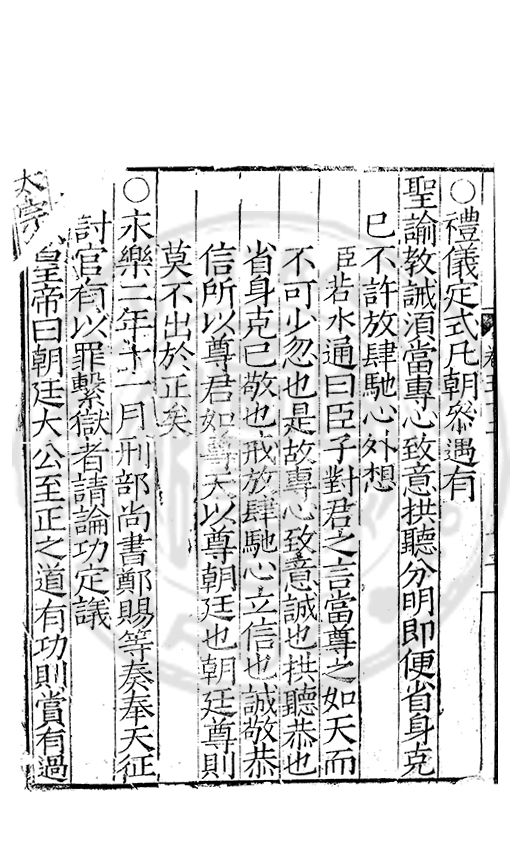 ○禮儀定式凡朝叅遇有
聖諭敎誡湏當專心致意拱聽分明即便省身克
已不許放肆馳心外想
臣若水通曰臣子對君之言當尊之如天而
不可少忽也是故專心致意誠也拱聽恭也
省身克已敬也戒放肆馳心立信也誠敬恭
信所以尊君如尊天以尊朝廷也朝廷尊則
莫不出於正矣
○永樂二年十一月刑部尚書鄭賜等奏奉天征
討官有以罪繫獄者請論功定議
太宗
皇帝曰朝廷大公至正之道有功則賞有過